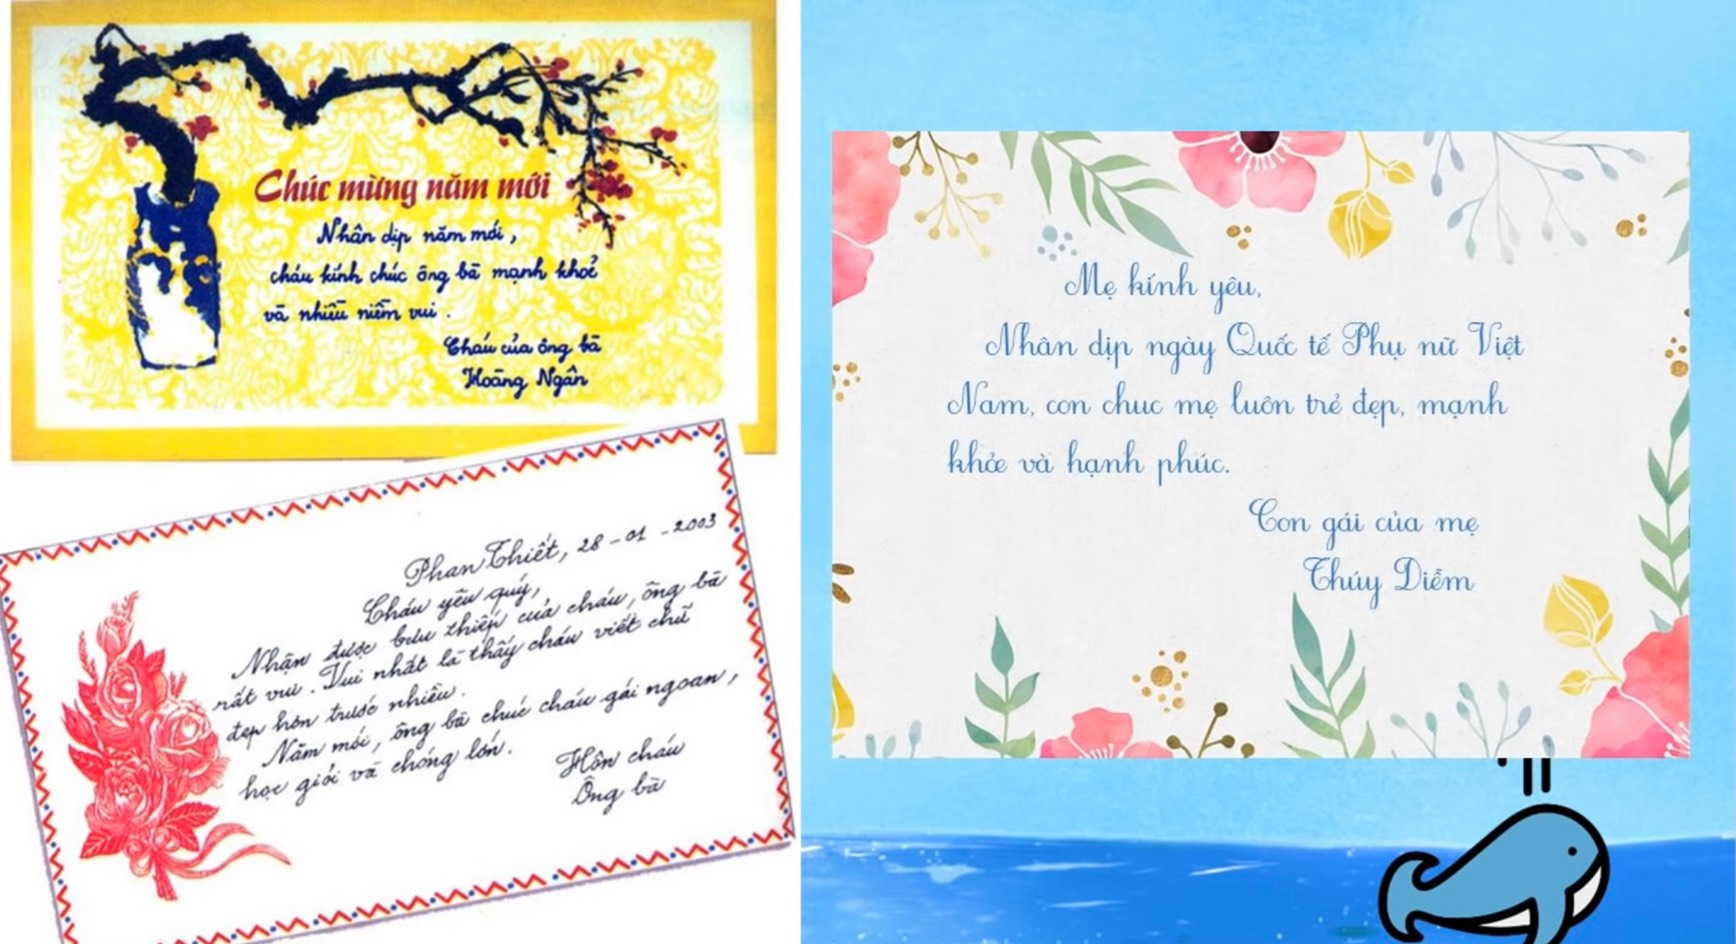 Chúc mừng năm mới
Nhân dịp năm mới,
cháu kính chúc ông bà mạnh khoẻ
và nhiều niềm vui.
Cháu của ông bà
Hoàng Ngân
Phan Thiết, 28-01-2003
Cháu yêu quý,
Nhận được bưu thiếp của cháu, ông bà
rất vui. Vui nhất là thấy cháu viết chữ
đẹp hơn trước nhiều.
Năm mới, ông bà chúc cháu gái ngoan,
học giỏi và chóng lớn.
Hôn cháu
Ông bà
Mẹ kính yêu,
Nhân dịp ngày Quốc tế Phụ nữ Việt
Nam, con chuc mẹ luôn trẻ đẹp, mạnh
khỏe và hạnh phúc.
Con gái của mẹ
Thúy Diễm